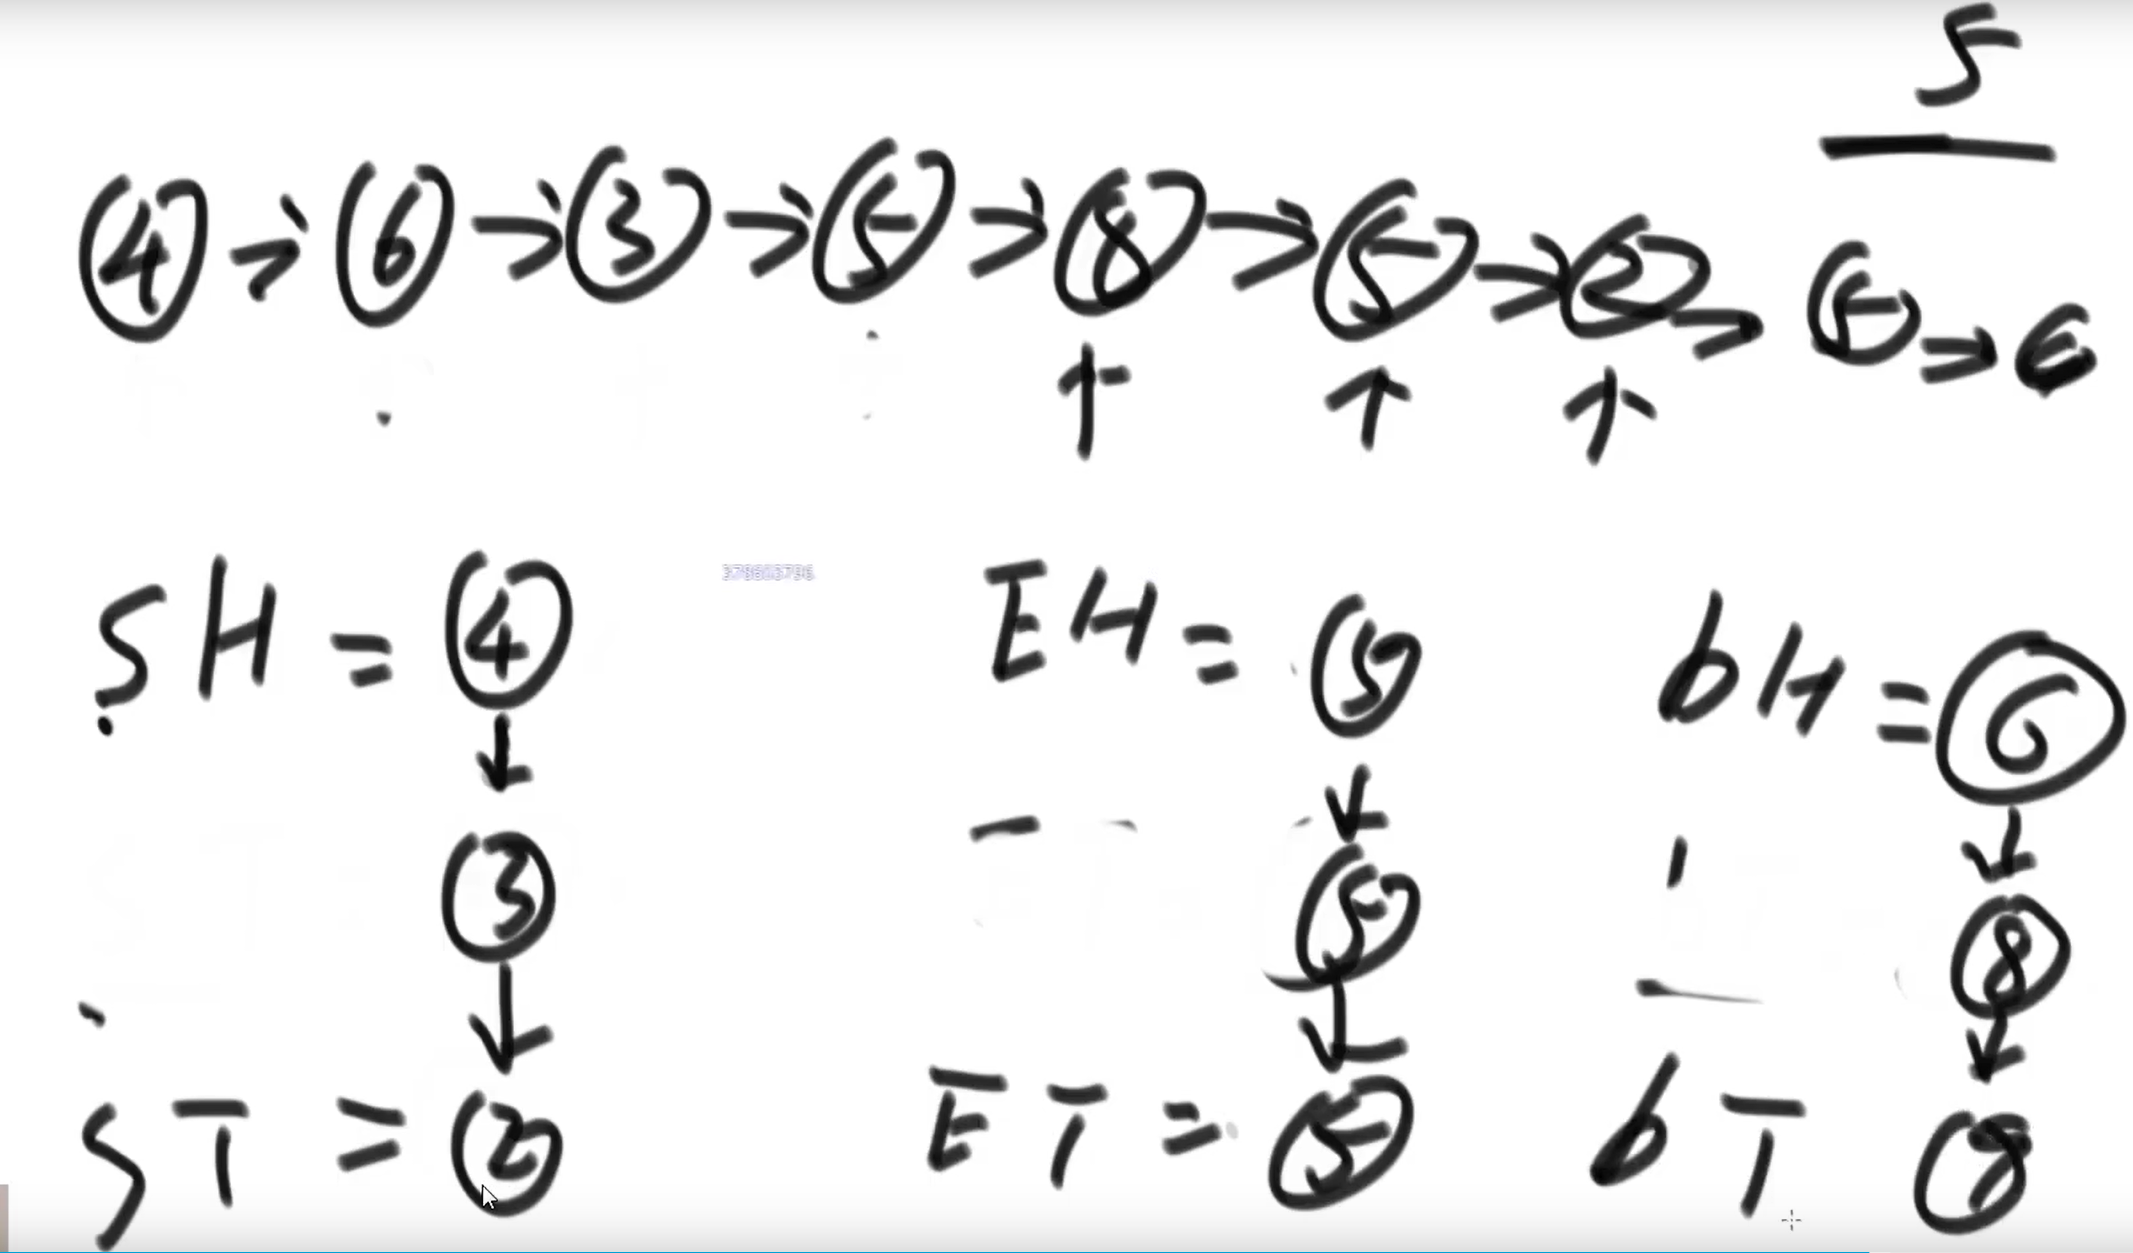 5
4 → 6 → 3 → 5 → 8 → 5 → 2 → 5 → 6
SH = 4 EH = 5 bH = 6
↓ ↓ ↓
3 5 8
↓ ↓ ↓
ST = 2 ET = 5 bT 8